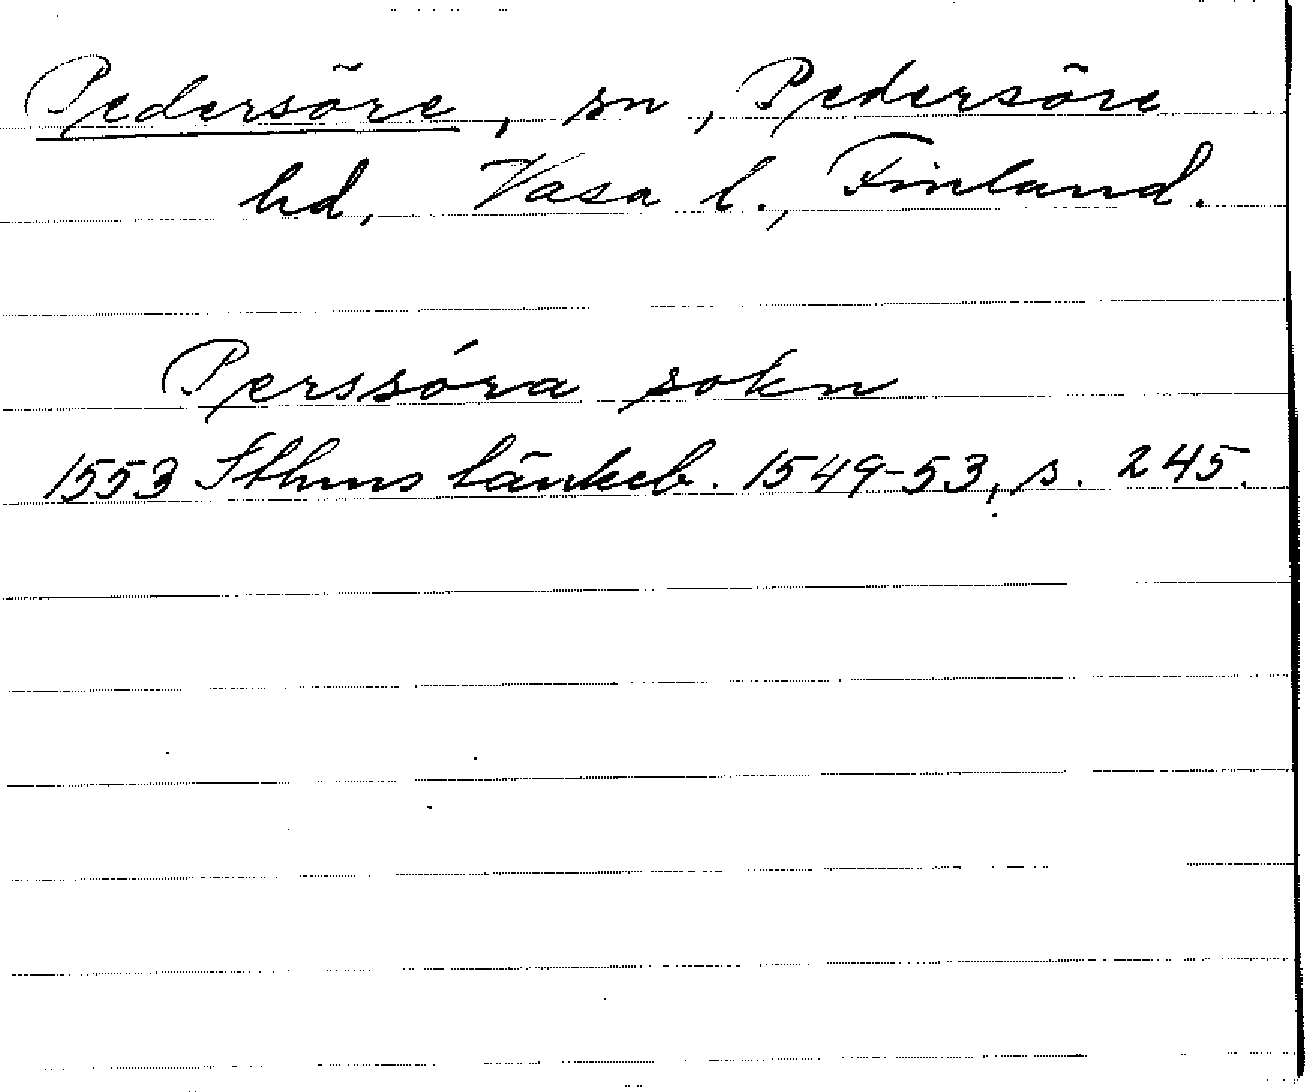 Pedersöre, sn, Pedersöre
hd, Vasa l., Finland.
Perssóra sokn
1553 Sthms tänkeb. 1549-53, s. 245.